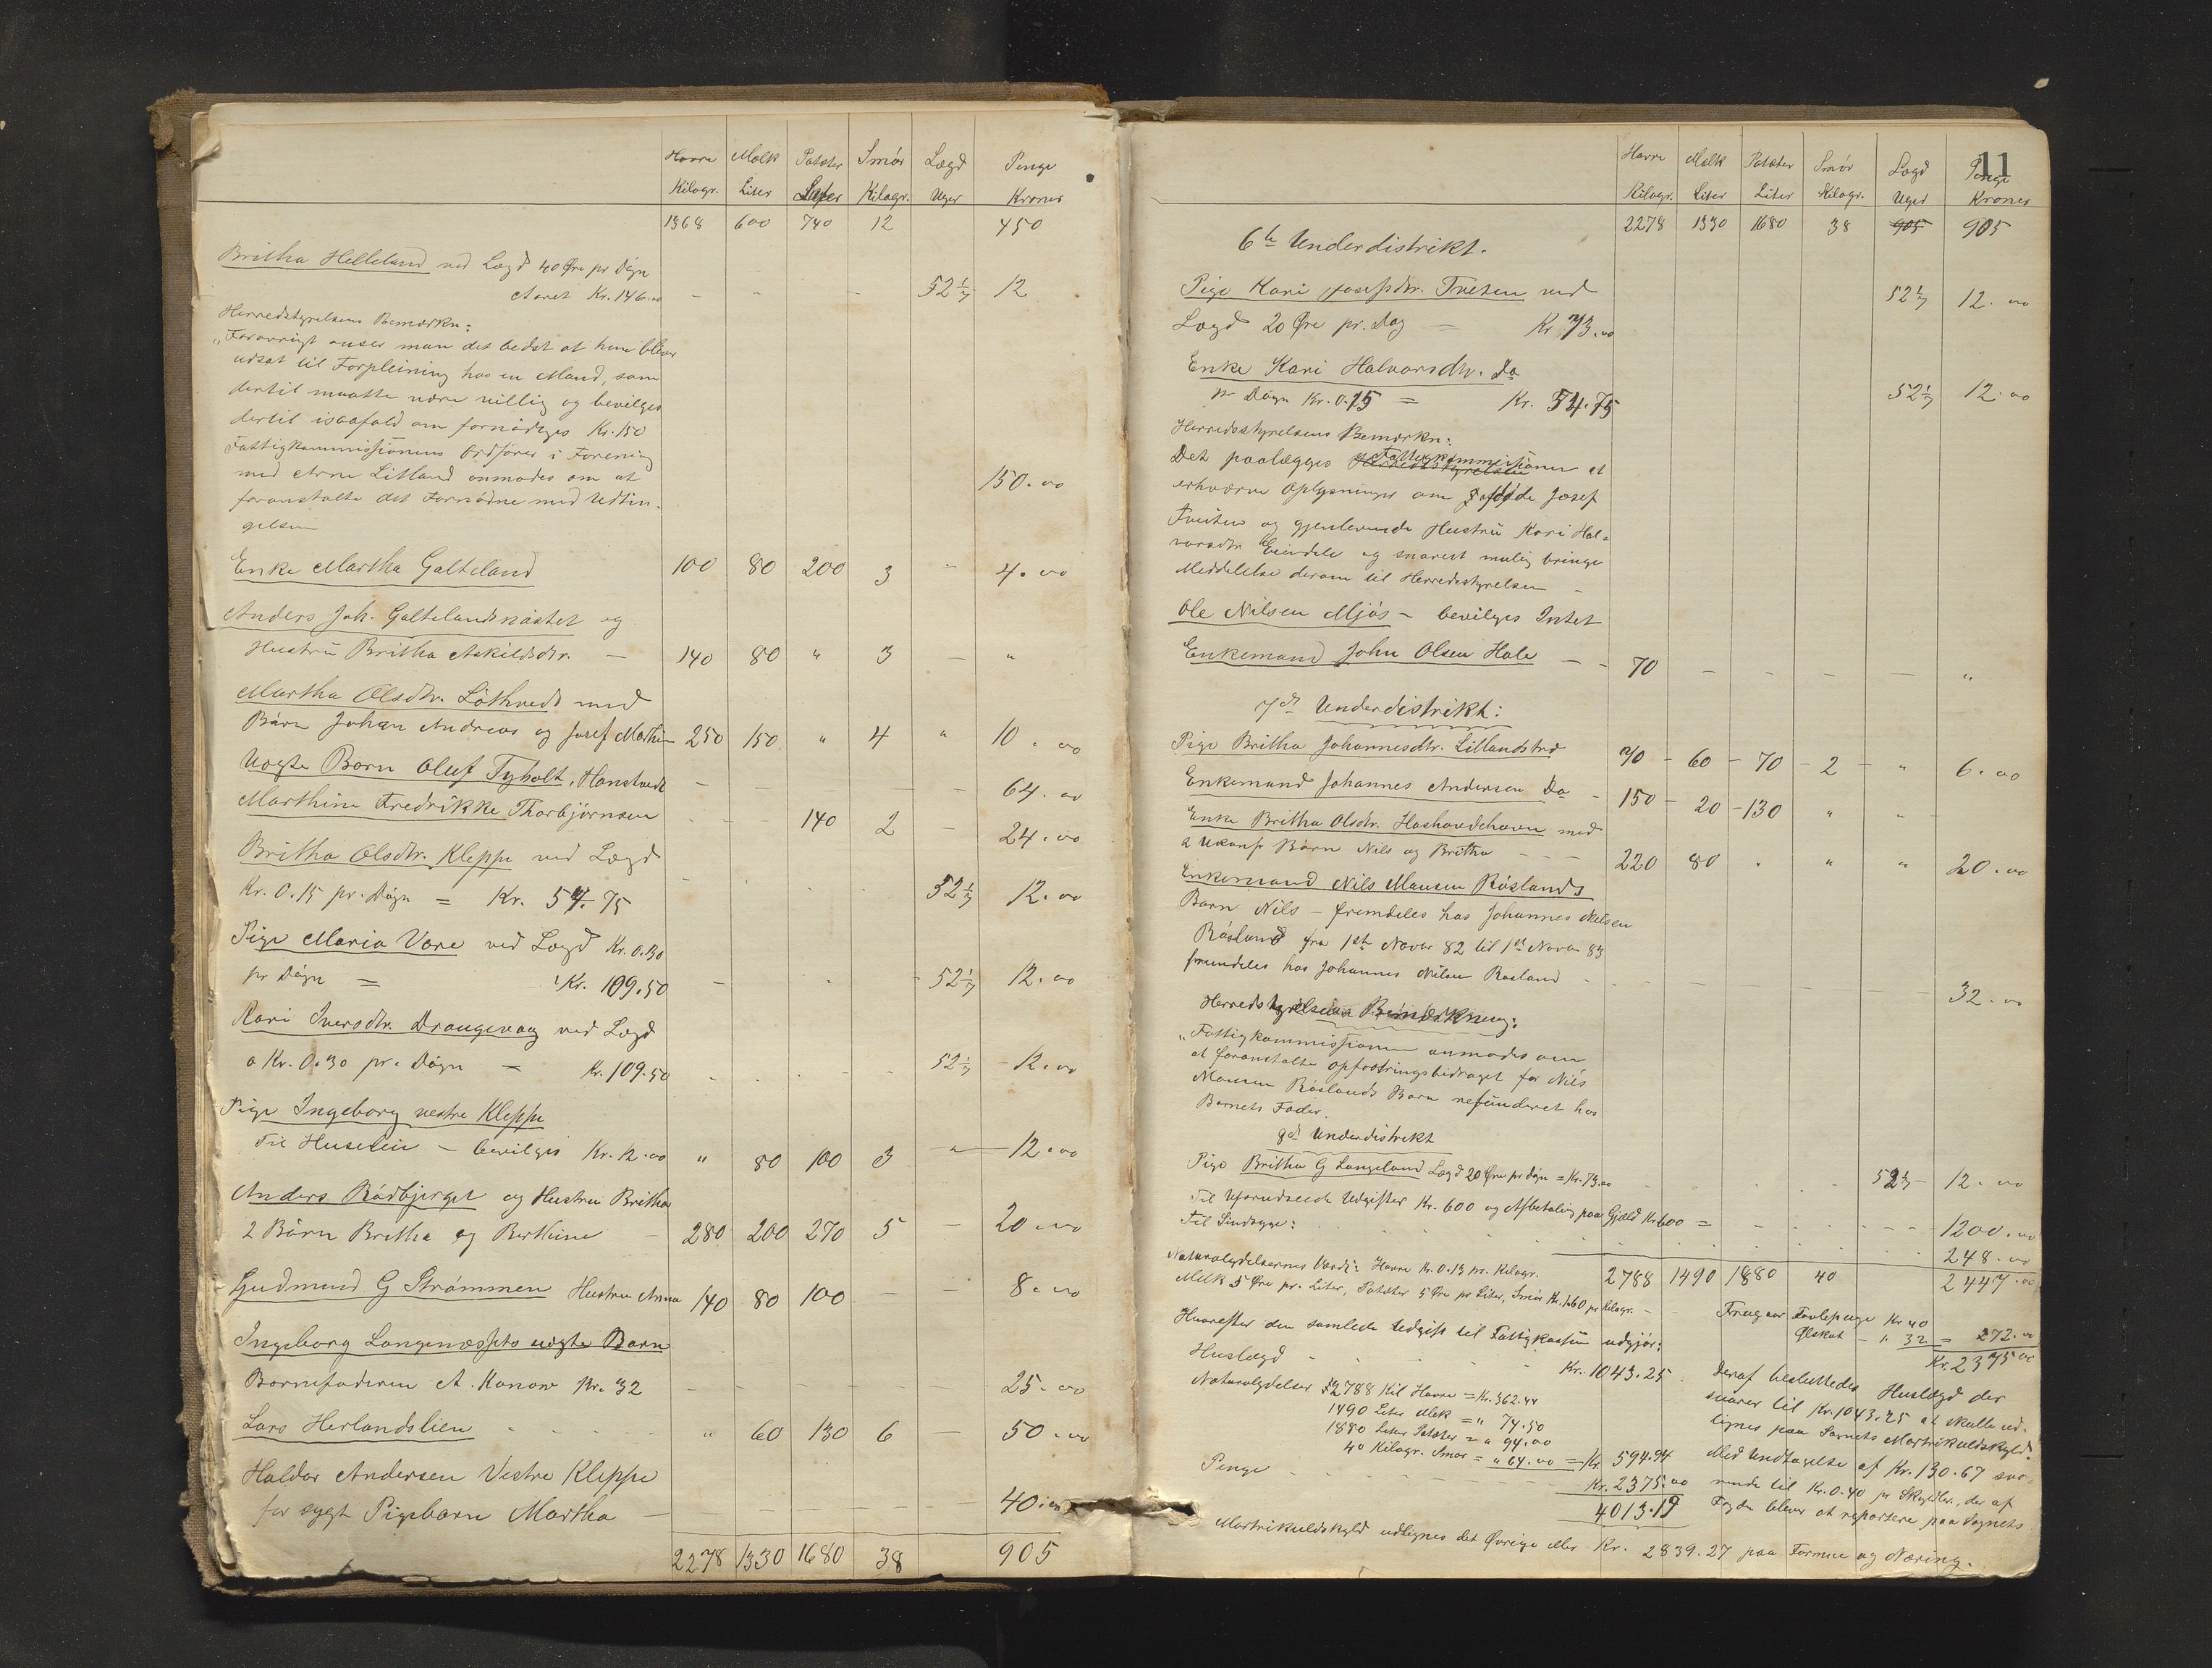 Havre Melk Poteter Smör Lægd Penge
Kilogr. Liter Liter Kilogr. Uger Kroner
1368 600 740 12 450
Britha Helleland ved Lægd 40 Øre pr Dögn
Aaret Kr. 146.00 - - - 52 1/7 12
Herredstyrelsens Bemærkn:
"Forövrigt anser man det bedst at hun bliver
udsat til Forpleining hos en Mand, som
dertil maatte være villig og bevilges
dertil isaafald om fornödiges Kr. 150
Fattigkommissionens Ordförer i Forening
med Arne Litland anmodes om at 150.00
foranstalte det Fornödne med Udtin-
gelsen
Enke Martha Galteland 100 80 200 3 " 4.00
Anders Joh. Galtelandsnästet og
Hustru Britha Askildsdtr. - 140 80 " 3 - "
Martha Olsdtr. Löthvedt med
Börn Johan Andreas og Josef Mathin 250 150 " 4 " 10.00
Uægte Barn Oluf Tyholt, Hanstvedt - - - - - 64.00
Marthine Fredrikke Thorbjörnsen - - 140 2 - 24.00
Britha Olsdtr. Kleppe ved Lægd
Kr. 0.15 pr. Dögn = Kr. 54.75 - - - - 52 1/7 12.00
Pige Maria Vare ved Lægd Kr. 0.30
pr Dögn = Kr. 109.50 - - - 52 1/7 12.00
Kari Iversdtr. Drangevaag ved Lægd
a Kr. 0.30 pr. Dögn = Kr. 109.50 - - - - 52 1/7 - 12.00
Pige Ingeborg vestre Kleppe
Til Huseleie - bevilges Kr. 12.00 " 80 100 3 - 12.00
Anders Rödbjerget og Hustru Britha
2 Börn Britha og Berthine - 280 200 270 5 - 20.00
Gudmund G Strömmen Hustru Anna 140 80 100 - - 8.00
Ingeborg Langenæssets uægte Barn
Barnefaderen A. Konow Kr. 32 - - - - - 25.00
Lars Herlandslien " 60 130 6 - 50.00
Haldor Andersen Vestre Kleppe
for sygt Pigebarn Martha - - - - - - 40.00
2278 1330 1680 38 905
11
Havre Melk Poteter Smör Lægd Penge
Kilogr. Liter Liter Kilogr. Uger Kroner
2278 1330 1680 38 905 905
6te Underdistrikt.
Pige Kari Josefsdtr. Tveiten ved 52 1/7 12.00
Lægd 20 Øre pr. Dag - Kr 73.00
Enke Kari Halvorsdtr. Do
pr Dögn Kr. 0.15 = Kr. 54.75 52 1/7 12.00
Herredsstyrelsens Bemærkn:
Det paalægges Herredsstyrelsen Fattigkommissionen at
erhværve Oplysninger om afdöde Josef
Tveiten og gjenlevende Hustru Kari Hal-
vorsdtr Eiendele og snarest mulig bringe
Meddelelse derom til Herredsstyrelsen -
Ole Nilsen Mjös - bevilges Intet
Enkemand John Olsen Hole - - 70 - - - - "
7de Underdistrikt:
Pige Britha Johannesdtr. Litlandstræ 70 - 60 - 70 - 2 - " 6.00
Enkemand Johannes Andersen Do - 150 - 20 - 130 " " -
Enke Britha Olsdtr. Hashovdehavn med
2 Ukonf Börn Nils og Britha - - - 220 80 " " " 20.00
Enkemand Nils Monsen Röslands
Barn Nils - fremdeles hos Johannes Nilsen
Rösland fra 1ste Novbr 82 til 1ste Novbr 83
fremdeles hos Johannes Nilsen Rösland - - - - - - 32.00
Herredstyrelsens Bemærkning:
"Fattigkommissionen anmodes om
at foranstalte opfostringsbidraget for Nils
Monsen Röslands Barn refunderet hos
Barnets Fader.
8de Underdistrikt
Pige Britha G Langeland Lægd 20 Øre pr dögn = Kr. 73.00 52 1/7 - 12.00
Til Uforudseede Udgifter Kr. 600 og Afbetaling paa Gjæld Kr 600 = - - - - 1200.00
Til Sindsyge: 248.00
Naturalydelsernes Værdi: Havre Kr. 0.13 pr. Kilogr. 2788 1490 1880 40 2447.00
Melk 5 Øre pr. Liter, Poteter 5 Øre pr Liter, Smör Kr. 1.60 pr Kilogr. - Fragaar Kr 40
Hvorefter den samlede Udgift til Fattigkassen udgjör: Ølskat - " 32 = 272.00
Kr. 2375.00
Huslægd Kr. 1043.25 Deraf besluttedes Huslægd der
Naturalydelser 2788 Kil Havre = Kr. 362.44 svarer til Kr. 1043.25 at skulle ud-
1490 Liter Melk = " 74.50 lignes paa Sognets Matrikulskyld
1880 Liter Poteter = " 94.00
40 Kilogr. Smör = " 64.00 = Kr. 594.94 Med Undtagelse af Kr. 130.67 sva-
Penge Kr. 2375.00 rende til Kr. 0.40 pr Skyldlr., der af
4013.19 Fogden bliver at repartere paa Sognets
Matrikulskyld udlignes det Øvrige eller Kr. 2839.27 paa Formue og Næring.